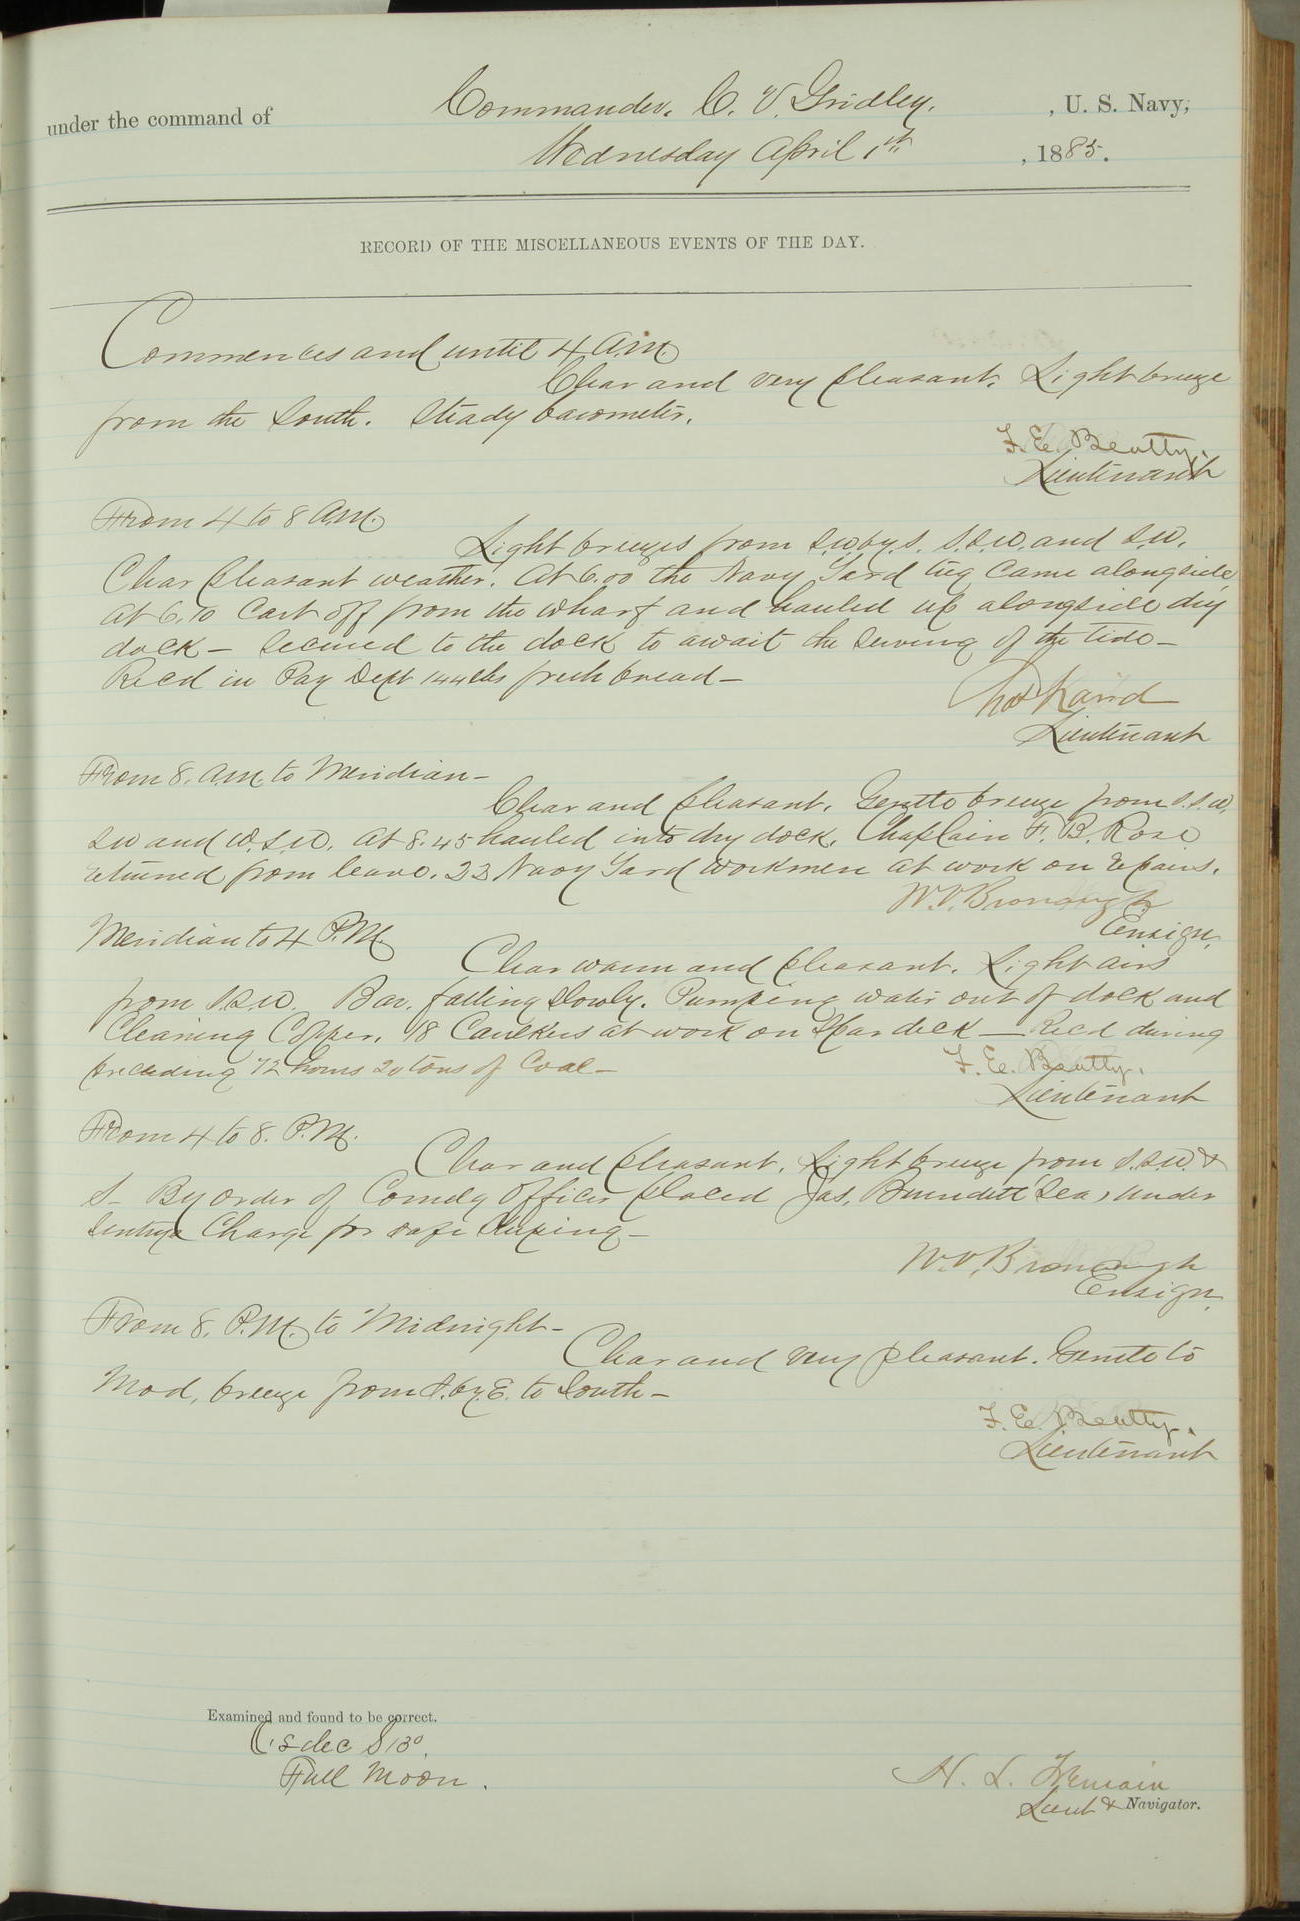 under the command of Commander. C. V. Gridley. , U. S. Navy,
Wednesday April 1st , 1885.
RECORD OF THE MISCELLANEOUS EVENTS OF THE DAY.
Commences and until 4 A.M.
Clear and very pleasant. Light breeze
from the South. Steady barometer.
F. E. Beatty.
Lieutenant
From 4 to 8 A.M.
Light breezes from S.W.by.S. S.S.W. and S.W.
Clear pleasant weather. At 6.00 the Navy Yard tug came alongside
at 6.10 Cast off from the wharf and hauled up alongside dry
dock – Secured to the dock to await the serving of the tide –
Rec'd in Pay Dept 144 lbs fresh bread –
Lieutenant
From 8. A.M. to Meridian –
Clear and pleasant. Gentle breeze from S.S.W,
SW and W.S.W. At 8.45 hauled into dry dock. Chaplain F. B. Rose
returned from leave. 23 Navy Yard workmen at work on repairs.
W. V. Bronaugh
Ensign.
Meridian to 4 P.M.
Clear warm and pleasant. Light airs
from S.S.W. Bar. falling slowly. Pumping water out of dock and
Cleaning Copper. 18 Caulkers at work on Spar deck — Rec'd during
preceding 72 hours 20 tons of Coal –
F. E. Beatty.
Lieutenant
From 4 to 8. P.M.
Clear and pleasant. Light breeze from S.S.W. &
S – By order of Comdg Officer placed Jas. Burndett (Sea) under
Sentry's Charge for safe keeping –
W. V. Bronaugh
Ensign.
From 8. P.M. to Midnight –
Clear and very pleasant. Gentle to
Mod, breeze from S.by.E. to South –
F. E. Beatty.
Lieutenant
Examined and found to be correct.
('s dec S 13°.
Full Moon.
H. L. Tremain
Lieut & Navigator.